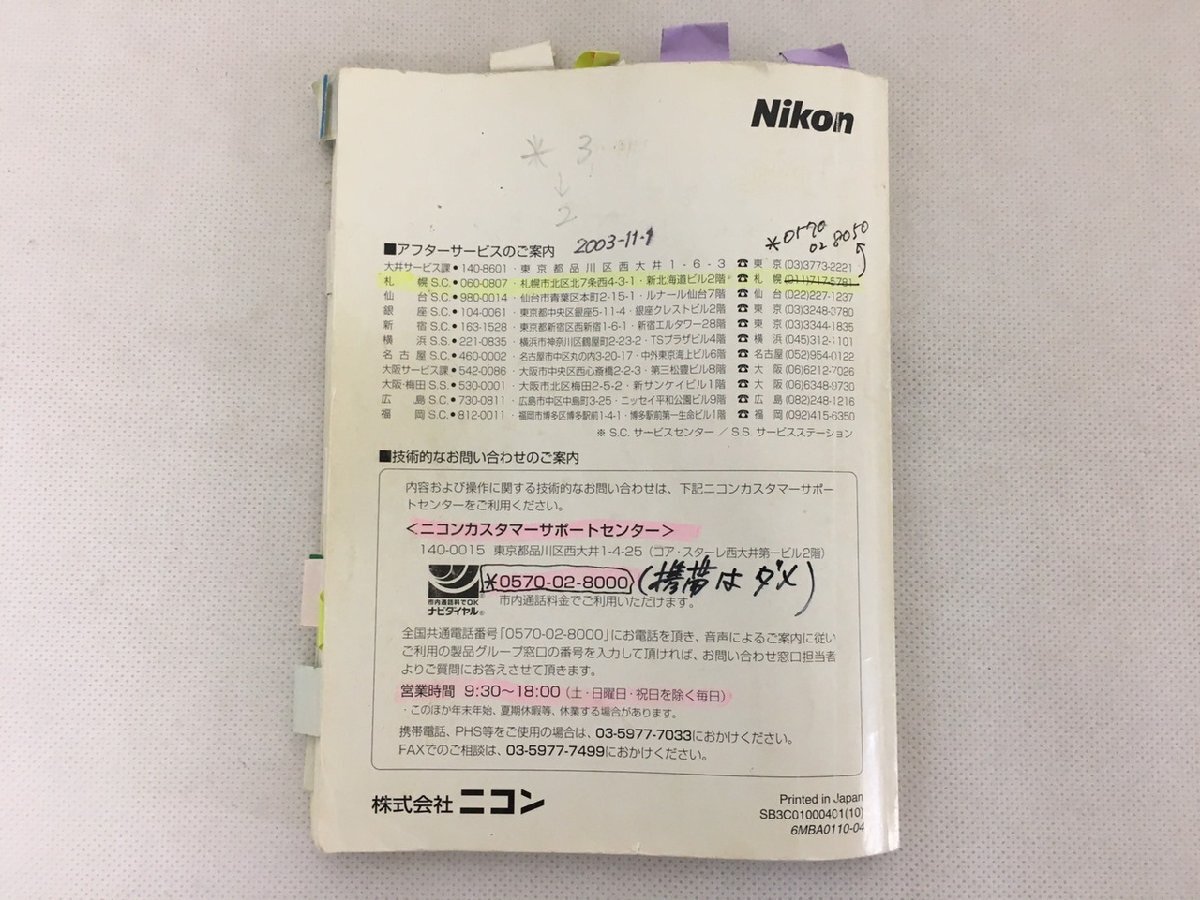 Nikon
* 3
↓
2
*0570
02 8050
■アフターサービスのご案内 2003-11-1
大井サービス課●140-8601・東京都品川区西大井1-6-3 ☎東京(03)3773-2221
札幌S.C.●060-0807・札幌市北区北7条西4-3-1・新北海道ビル2階 ☎札幌(011)717-5781
仙台S.C.●980-0014・仙台市青葉区本町2-15-1・ルナール仙台7階 ☎仙台(022)227-1237
銀座S.C.●104-0061・東京都中央区銀座5-11-4・銀座クレストビル2階 ☎東京(03)3248-3780
新宿S.C.●163-1528・東京都新宿区西新宿1-6-1・新宿エルタワー28階 ☎東京(03)3344-1835
横浜S.S.●221-0835・横浜市神奈川区鶴屋町2-23-2・TSプラザビル4階 ☎横浜(045)312-1101
名古屋S.C.●460-0002・名古屋市中区丸の内3-20-17・中外東京海上ビル6階 ☎名古屋(052)954-0122
大阪サービス課●542-0086・大阪市中央区西心斎橋2-2-3・第三松豊ビル8階 ☎大阪(06)6212-7026
大阪・梅田S.S.●530-0001・大阪市北区梅田2-5-2・新サンケイビル1階 ☎大阪(06)6348-9730
広島S.C.●730-0811・広島市中区中島町3-25・ニッセイ平和公園ビル9階 ☎広島(082)248-1216
福岡S.C.●812-0011・福岡市博多区博多駅前1-4-1・博多駅前第一生命ビル1階 ☎福岡(092)415-6350
※S.C. サービスセンター／S.S. サービスステーション
■技術的なお問い合わせのご案内
内容および操作に関する技術的なお問い合わせは、下記ニコンカスタマーサポー
トセンターをご利用ください。
＜ニコンカスタマーサポートセンター＞
140-0015 東京都品川区西大井1-4-25（コア・スターレ西大井第一ビル2階）
*0570-02-8000 (携帯はダメ)
市内通話料でOK 市内通話料金でご利用いただけます。
ナビダイヤル®
全国共通電話番号「0570-02-8000」にお電話を頂き、音声によるご案内に従い
ご利用の製品グループ窓口の番号を入力して頂ければ、お問い合わせ窓口担当者
よりご質問にお答えさせて頂きます。
営業時間 9:30～18:00（土・日曜日・祝日を除く毎日）
・このほか年末年始、夏期休暇等、休業する場合があります。
携帯電話、PHS等をご使用の場合は、03-5977-7033におかけください。
FAXでのご相談は、03-5977-7499におかけください。
株式会社 ニコン
Printed in Japan
SB3C01000401(10)
6MBA0110-04